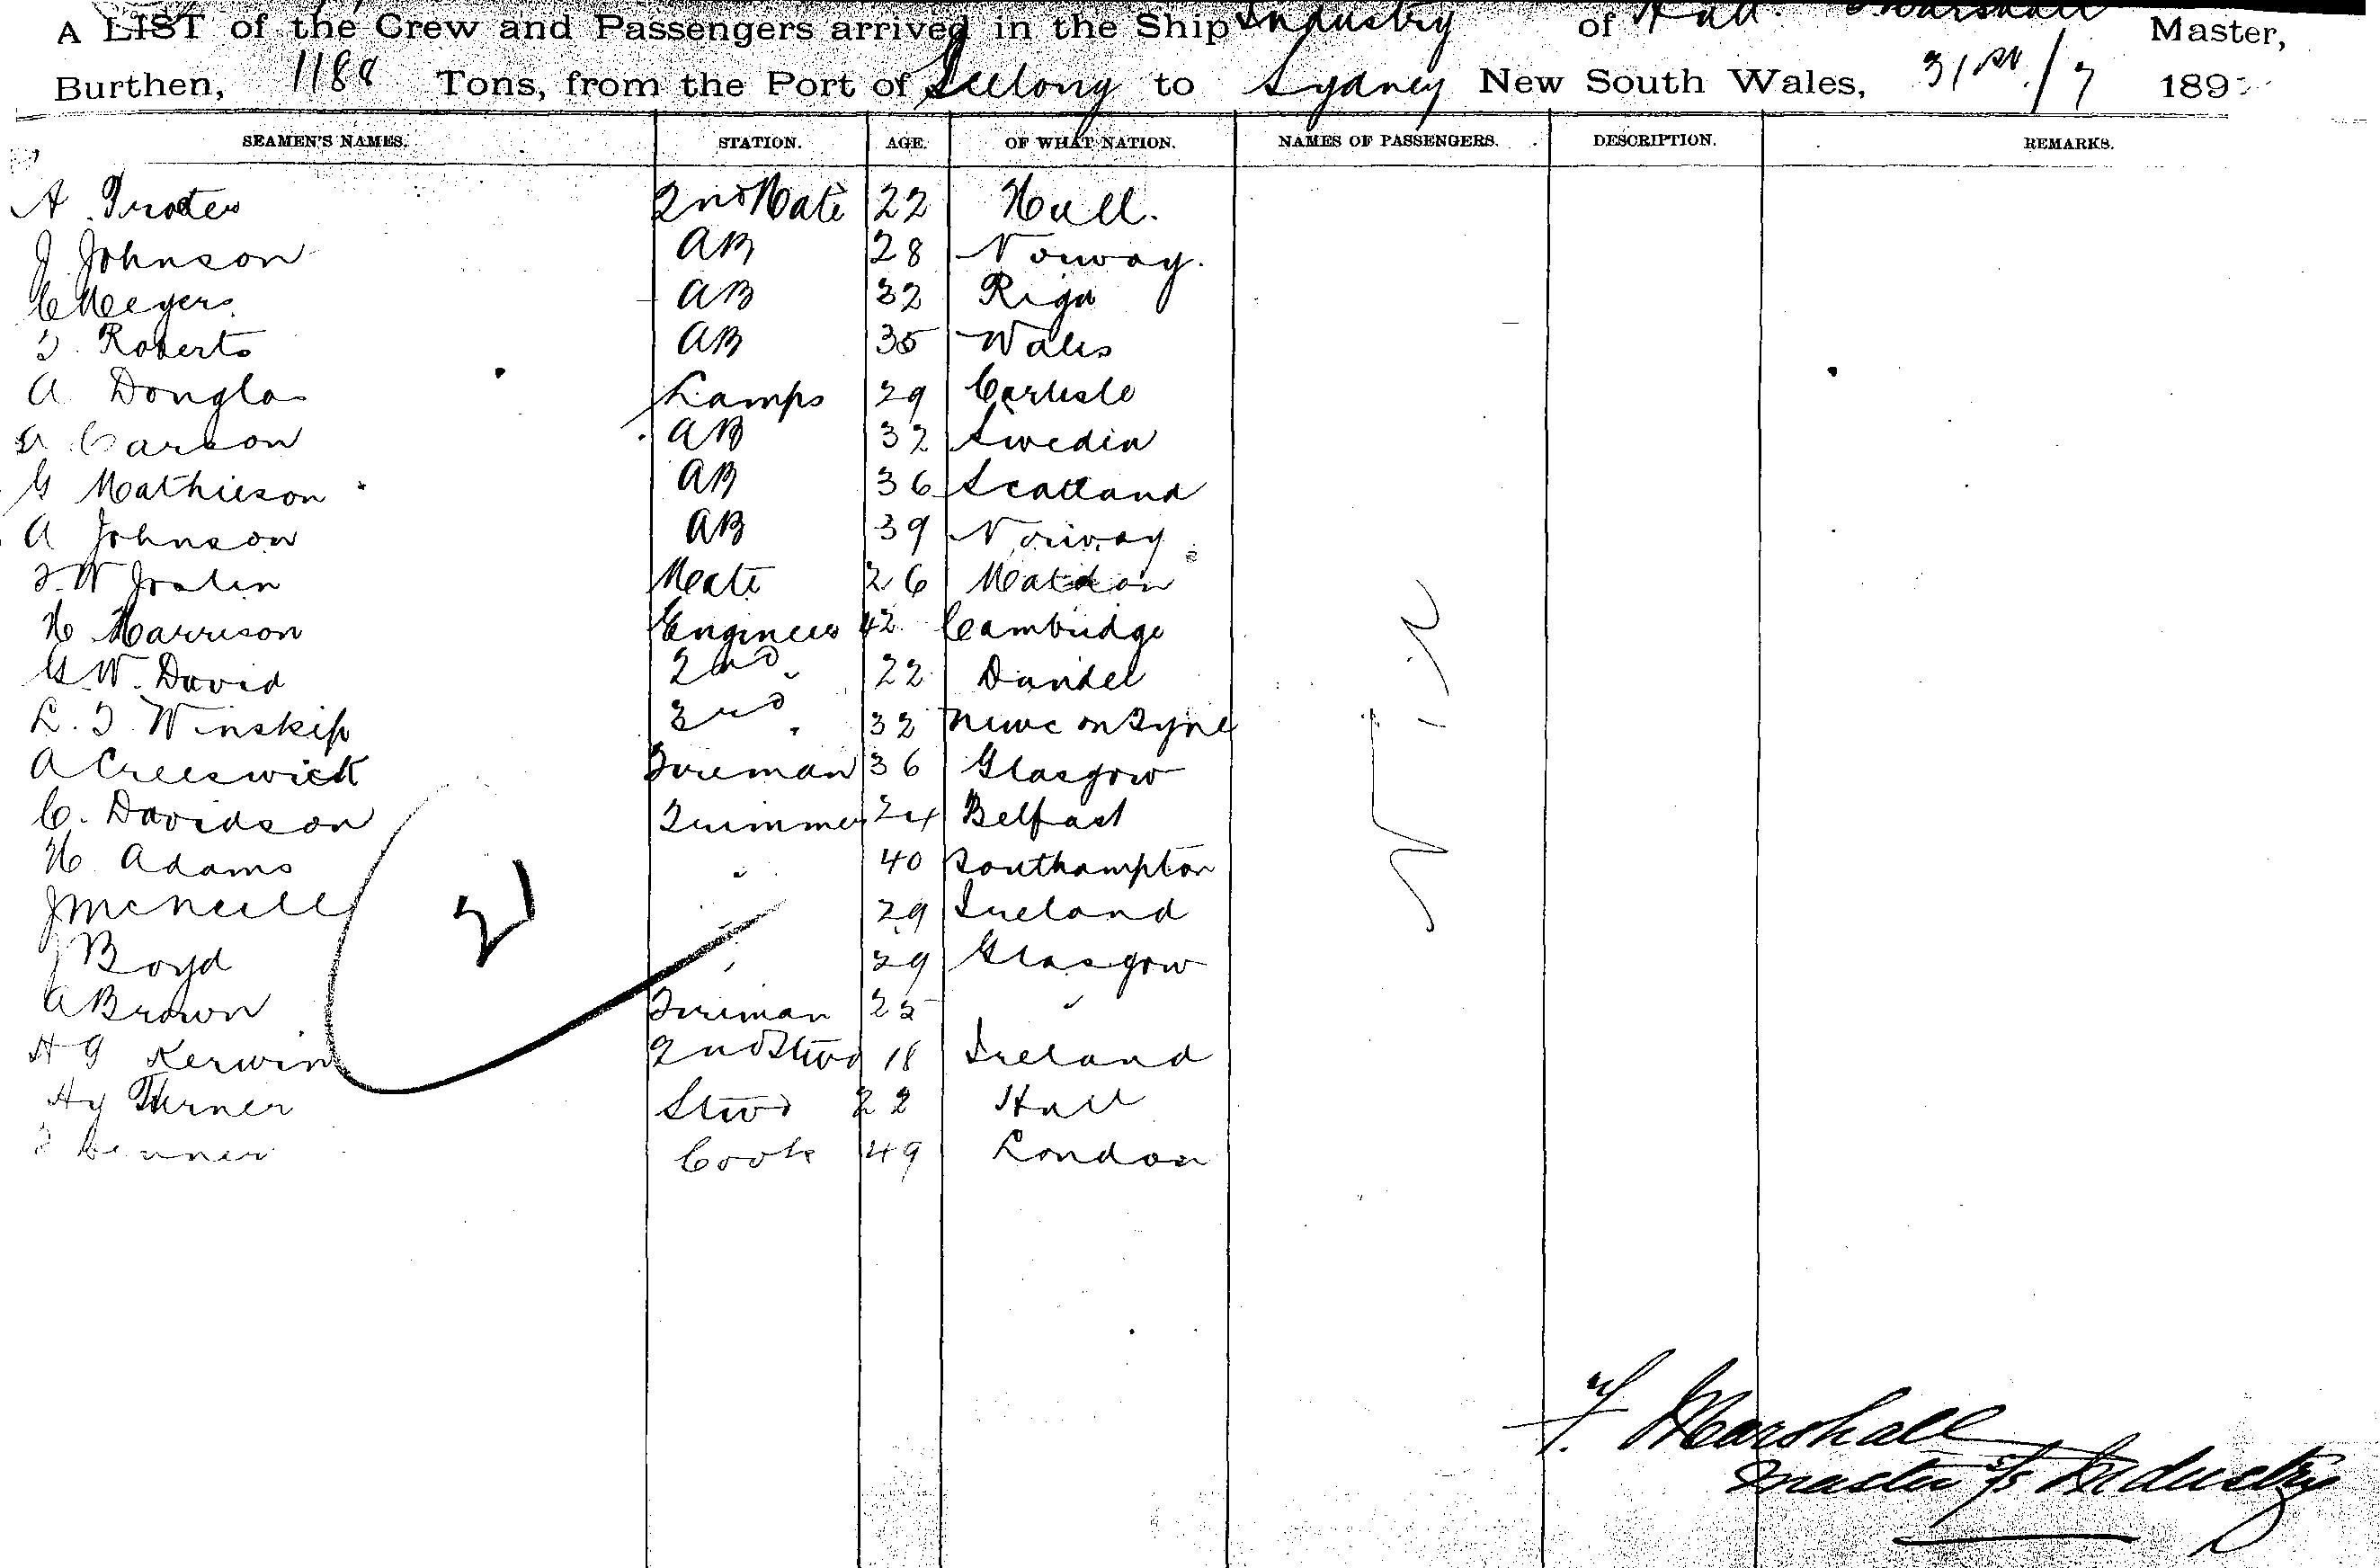 A LIST of the Crew and Passengers arrived in the Ship Industry of Hull. Marshall Master,
Burthen, 1188 Tons, from the Port of Geelong to Sydney New South Wales, 31st/7 189
SEAMEN'S NAMES. STATION. AGE. OF WHAT NATION. NAMES OF PASSENGERS. DESCRIPTION. REMARKS.
A 2nd Mate 22 Hull.
J Johnson AB 28 Norway.
C Meyers AB 32 Riga
T. Roberts AB 35 Wales
A Douglas Lamps 29 Carlisle
Carson AB 32 Sweden
G Mathieson AB 36 Scotland
A Johnson AB 39 Norway
Mate 26
H Harrison Engineer 42 Cambridge
G. W. David 2nd " 22 Dundee
L. T. Winskip 3rd " 32 Newc on Tyne
A Creeswick Fireman 36 Glasgow
C. Davidson Trimmer 24 Belfast
H. Adams " 40 Southampton
J McNeill " 29 Ireland
J Boyd " 29 Glasgow
A Brown Fireman 25 "
H G Kerwin 2nd Stwd 18 Ireland
Hy Turner Stwd 22 Hull
Cook 49 London
21
Nil
F. Marshall
Master S/S Industry